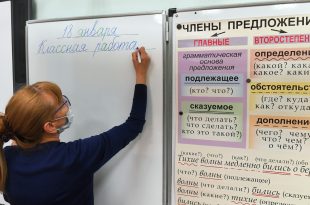 18 января
Классная работа
ЧЛЕНЫ ПРЕДЛОЖЕНИ
ГЛАВНЫЕ
грамматическая
основа
предложения
подлежащее
(кто? что?)
сказуемое
(что делать?
что сделать?
кто это такой?)
ВТОРОСТЕПЕН
определени
(какой? какая?
какое? какие
обстоятельст
(где? куда
как? отку
дополнени
(чего? чему?
чем?
о чём?)
(какие?) (что?) (как?) (что делали?)
Тихие волны медленно бились о бе
волны (подлежащее)
(что?)
волны (что делали?) бились (сказуемое
волны (какие?) тихие
бились